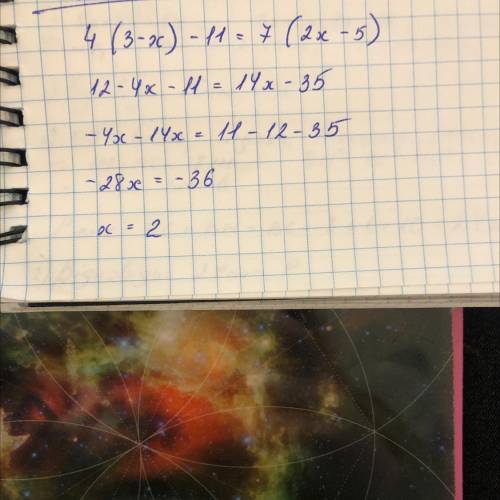 4 (3-x) - 11 = 7 (2x - 5)
12 - 4x - 11 = 14x - 35
-4x - 14x = 11 - 12 - 35
-28x = -36
x = 2